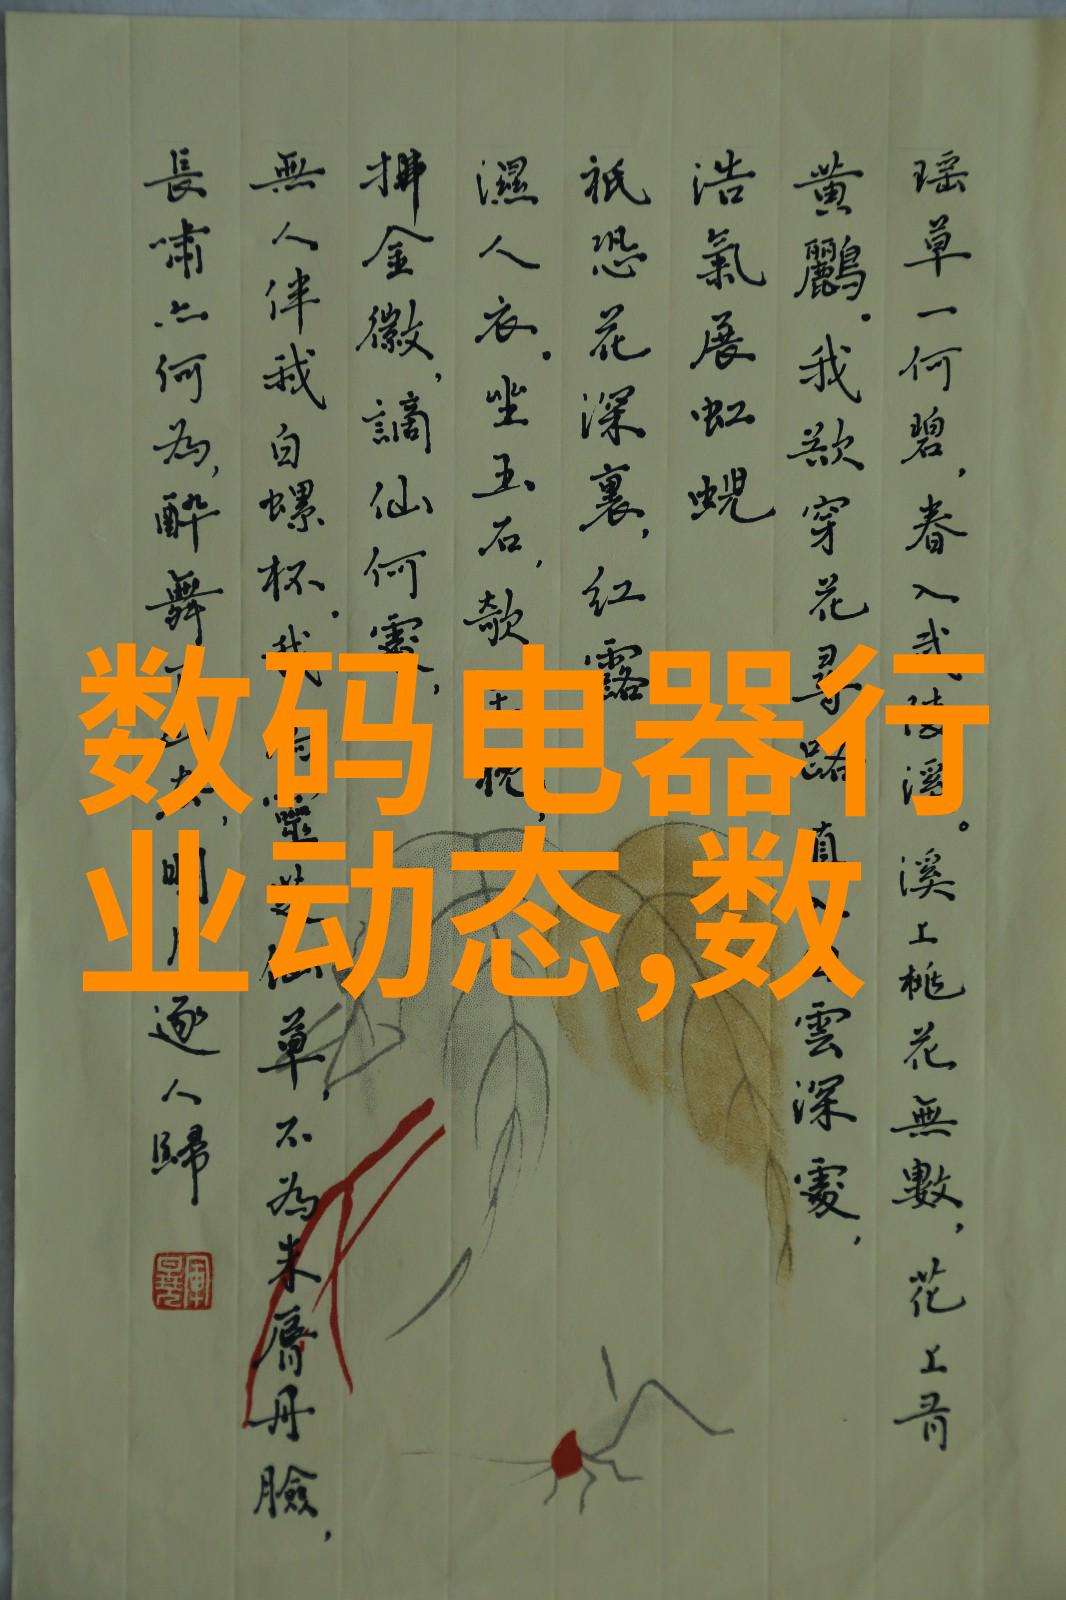 瑶草一何碧，春入武陵溪。溪上桃花無數，花上有
黄鸝。我欲穿花尋路直入雲深處，
浩氣展虹蜺
祇恐花深裏，紅露
濕人衣。坐玉石，欹枕，
拂金徽，謫仙何處，
無人伴我白螺杯。我靈芝仙草，不為朱脣丹臉，
長嘯亦何為，醉舞下山去，明月逐人歸
数码电器行
业动态,数